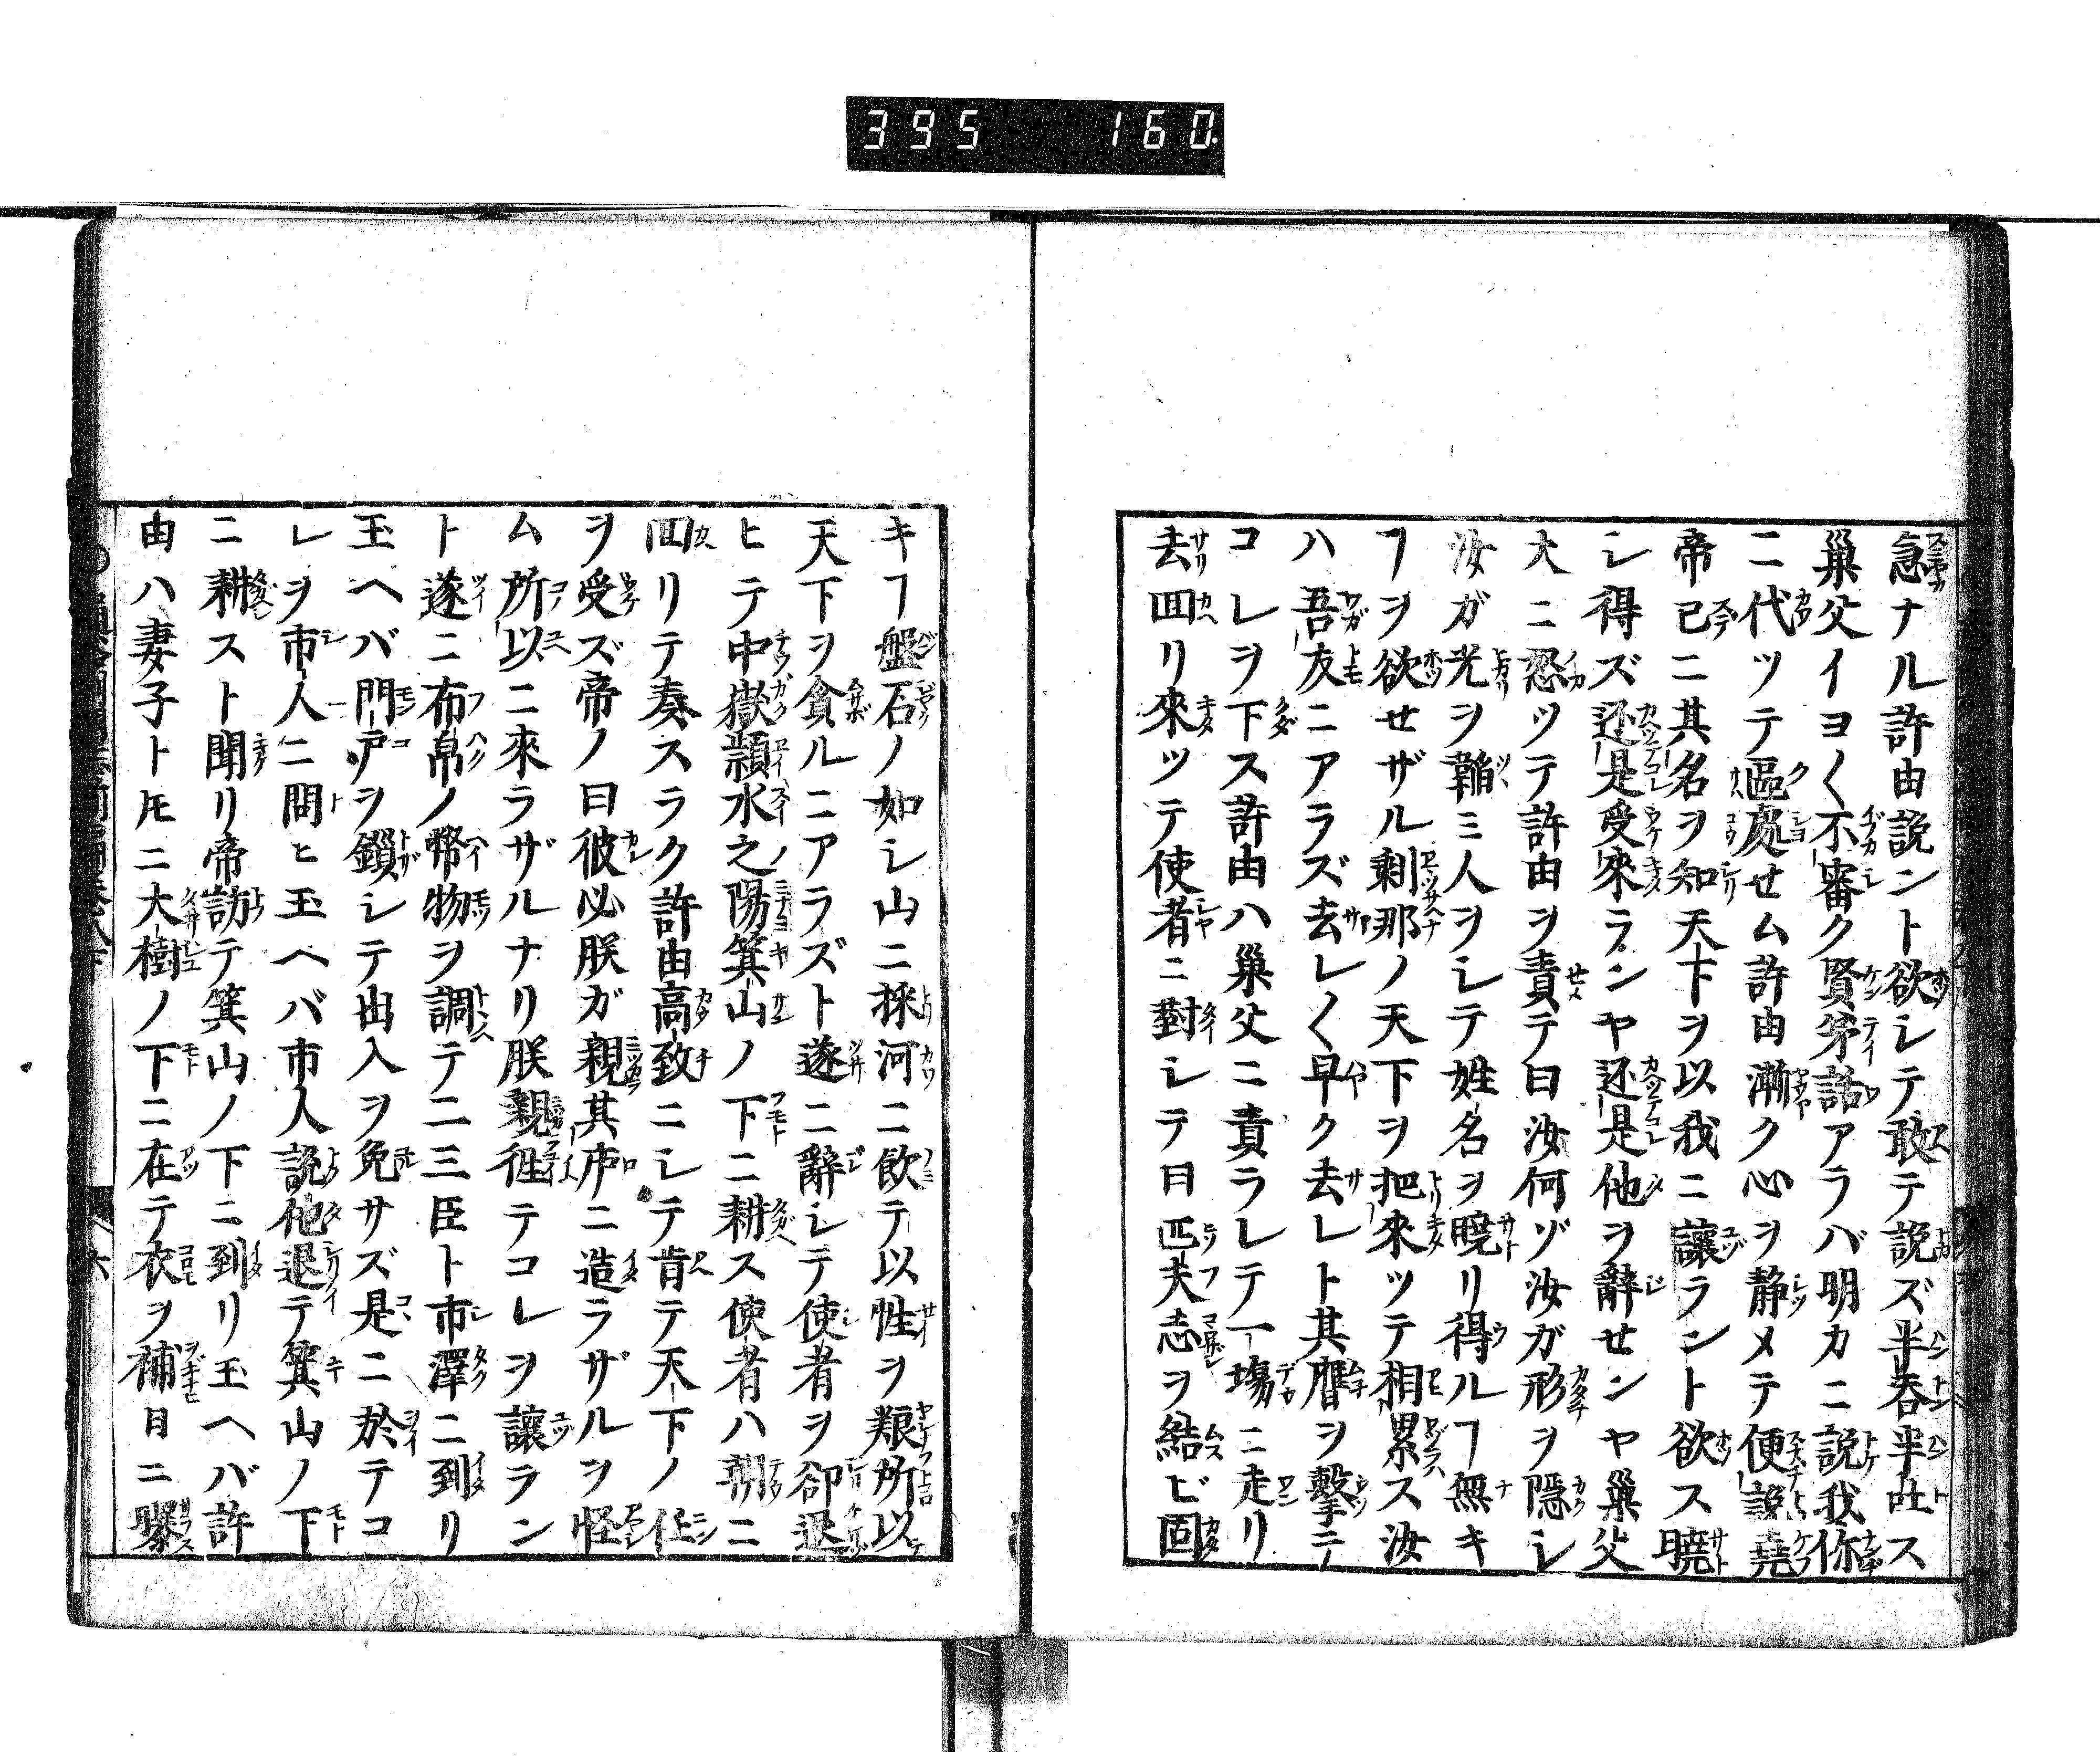 395 160
急ナル許由説ント欲シテ敢テ説ズ半呑半吐ス
巣父イヨ〱不審ク賢弟話アラバ明カニ説我你
ニ代ツテ區處せム許由漸ク心ヲ静メテ便説堯
帝已ニ其名ヲ知天下ヲ以我ニ讓ラント欲ス曉
シ得ズ还是受來ランヤ还是他ヲ辭せンヤ巣父
大ニ忿ツテ許由ヲ責テ曰汝何ゾ汝ガ形ヲ隠シ
汝ガ光ヲ韜ミ人ヲシテ姓名ヲ曉リ得ルヿ無キ
ヿヲ欲せザル剰那ノ天下ヲ把來ツテ相累ス汝
ハ吾友ニアラズ去レ〱早ク去レト其膺ヲ擊テ
コレヲ下ス許由ハ巣父ニ責ラレテ一塲ニ走リ
去回リ來ツテ使者ニ對シテ曰匹夫志ヲ結ビ固
キヿ盤石ノ如シ山ニ採河ニ飲テ以性ヲ粮所以
天下ヲ貪ルニアラズト遂ニ辭シテ使者ヲ卻退
ヒテ中嶽潁水之陽箕山ノ下ニ耕ス使者ハ朝ニ
回リテ奏スラク許由高致ニシテ肯テ天下ノ任
ヲ受ズ帝ノ曰彼必朕ガ親其庐ニ造ラザルヲ怪
ム所以ニ來ラザルナリ朕親徃テコレヲ讓ラン
ト遂ニ布帛ノ幣物ヲ調テ二三臣ト市澤ニ到リ
玉ヘバ門戸ヲ鎖シテ出入ヲ免サズ是ニ於テコ
レヲ市人ニ問ヒ玉ヘバ市人説他退テ箕山ノ下
ニ耕スト聞リ帝訪テ箕山ノ下ニ到リ玉ヘバ許
由ハ妻子トモニ大樹ノ下ニ在テ衣ヲ補日ニ曝
六